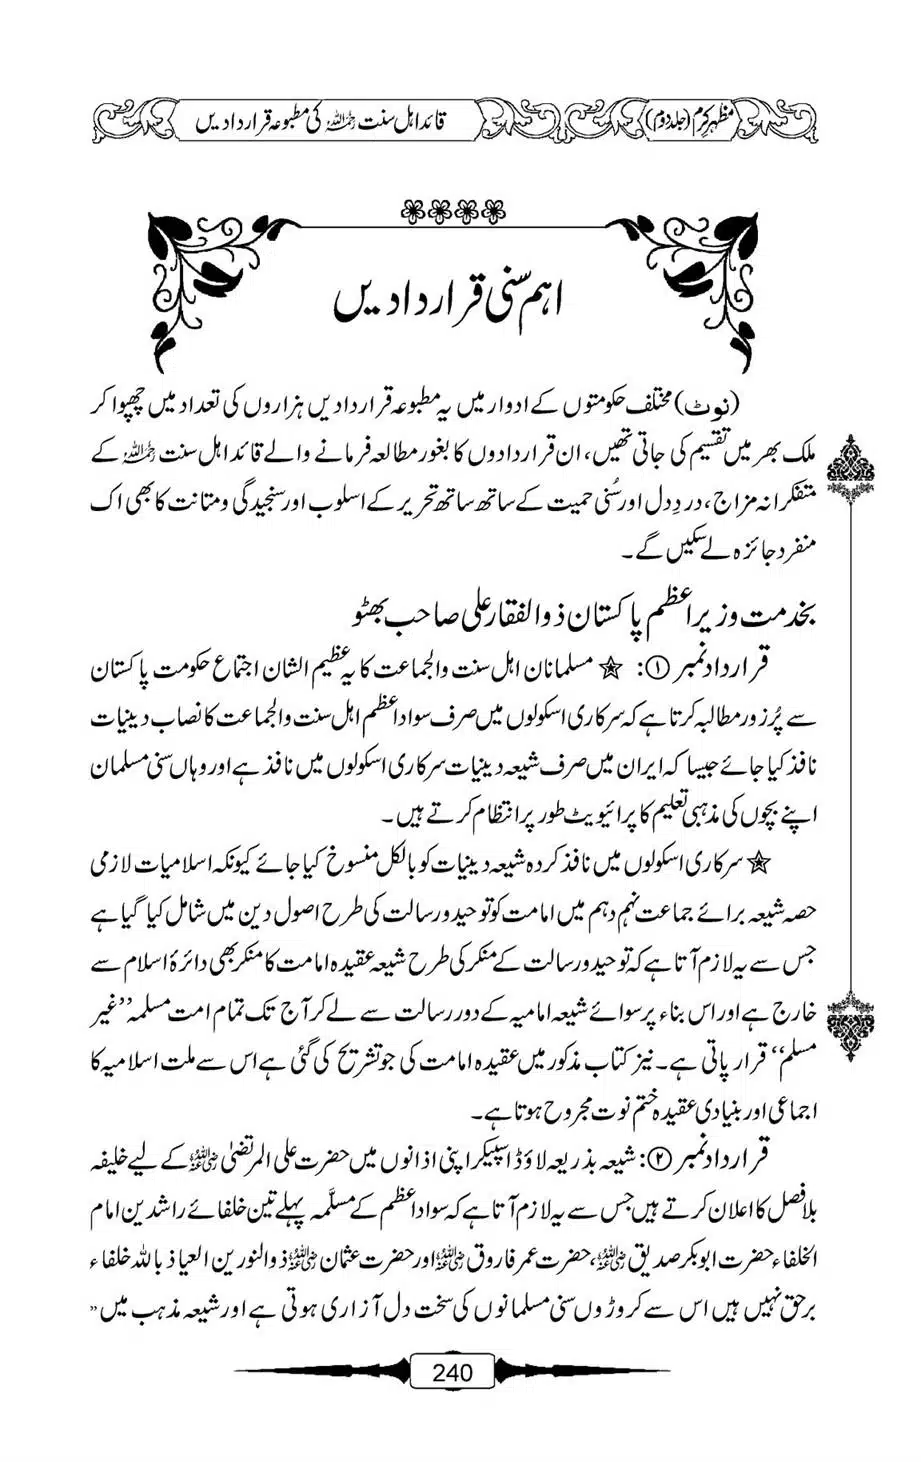 مظہرِ کرم (جلد دوم)
قائد اہل سنت رحمۃ اللہ علیہ کی مطبوعہ قراردادیں
اہم سنی قراردادیں
(نوٹ) مختلف حکومتوں کے ادوار میں یہ مطبوعہ قراردادیں ہزاروں کی تعداد میں چھپوا کر
ملک بھر میں تقسیم کی جاتی تھیں، ان قراردادوں کا بغور مطالعہ فرمانے والے قائد اہل سنت رحمۃ اللہ علیہ کے
متفکرانہ مزاج، دردِ دل اور سُنی حمیت کے ساتھ ساتھ تحریر کے اسلوب اور سنجیدگی و متانت کا بھی اک
منفرد جائزہ لے سکیں گے۔
بخدمت وزیر اعظم پاکستان ذوالفقار علی صاحب بھٹو
قرارداد نمبر ①: ✯ مسلمانان اہل سنت والجماعت کا یہ عظیم الشان اجتماع حکومت پاکستان
سے پُرزور مطالبہ کرتا ہے کہ سرکاری اسکولوں میں صرف سواد اعظم اہل سنت والجماعت کا نصاب دینیات
نافذ کیا جائے جیسا کہ ایران میں صرف شیعہ دینیات سرکاری اسکولوں میں نافذ ہے اور وہاں سنی مسلمان
اپنے بچوں کی مذہبی تعلیم کا پرائیویٹ طور پر انتظام کرتے ہیں۔
✯ سرکاری اسکولوں میں نافذ کردہ شیعہ دینیات کو بالکل منسوخ کیا جائے کیونکہ اسلامیات لازمی
حصہ شیعہ برائے جماعت نہم دہم میں امامت کو توحید و رسالت کی طرح اصول دین میں شامل کیا گیا ہے
جس سے یہ لازم آتا ہے کہ توحید و رسالت کے منکر کی طرح شیعہ عقیدہ امامت کا منکر بھی دائرۂ اسلام سے
خارج ہے اور اس بناء پر سوائے شیعہ امامیہ کے دور رسالت سے لے کر آج تک تمام امت مسلمہ ’’غیر
مسلم‘‘ قرار پاتی ہے۔ نیز کتاب مذکور میں عقیدہ امامت کی جو تشریح کی گئی ہے اس سے ملت اسلامیہ کا
اجماعی اور بنیادی عقیدہ ختم نوت مجروح ہوتا ہے۔
قرارداد نمبر ②: شیعہ بذریعہ لاؤڈ اسپیکر اپنی اذانوں میں حضرت علی المرتضیٰ رضی اللہ عنہ کے لیے خلیفہ
بلا فصل کا اعلان کرتے ہیں جس سے یہ لازم آتا ہے کہ سواد اعظم کے مسلَّمہ پہلے تین خلفائے راشدین امام
الخلفاء حضرت ابوبکر صدیق رضی اللہ عنہ، حضرت عمر فاروق رضی اللہ عنہ اور حضرت عثمان رضی اللہ عنہ ذوالنورین العیاذ باللہ خلفاء
برحق نہیں ہیں اس سے کروڑوں سنی مسلمانوں کی سخت دل آزاری ہوتی ہے اور شیعہ مذہب میں ”
240